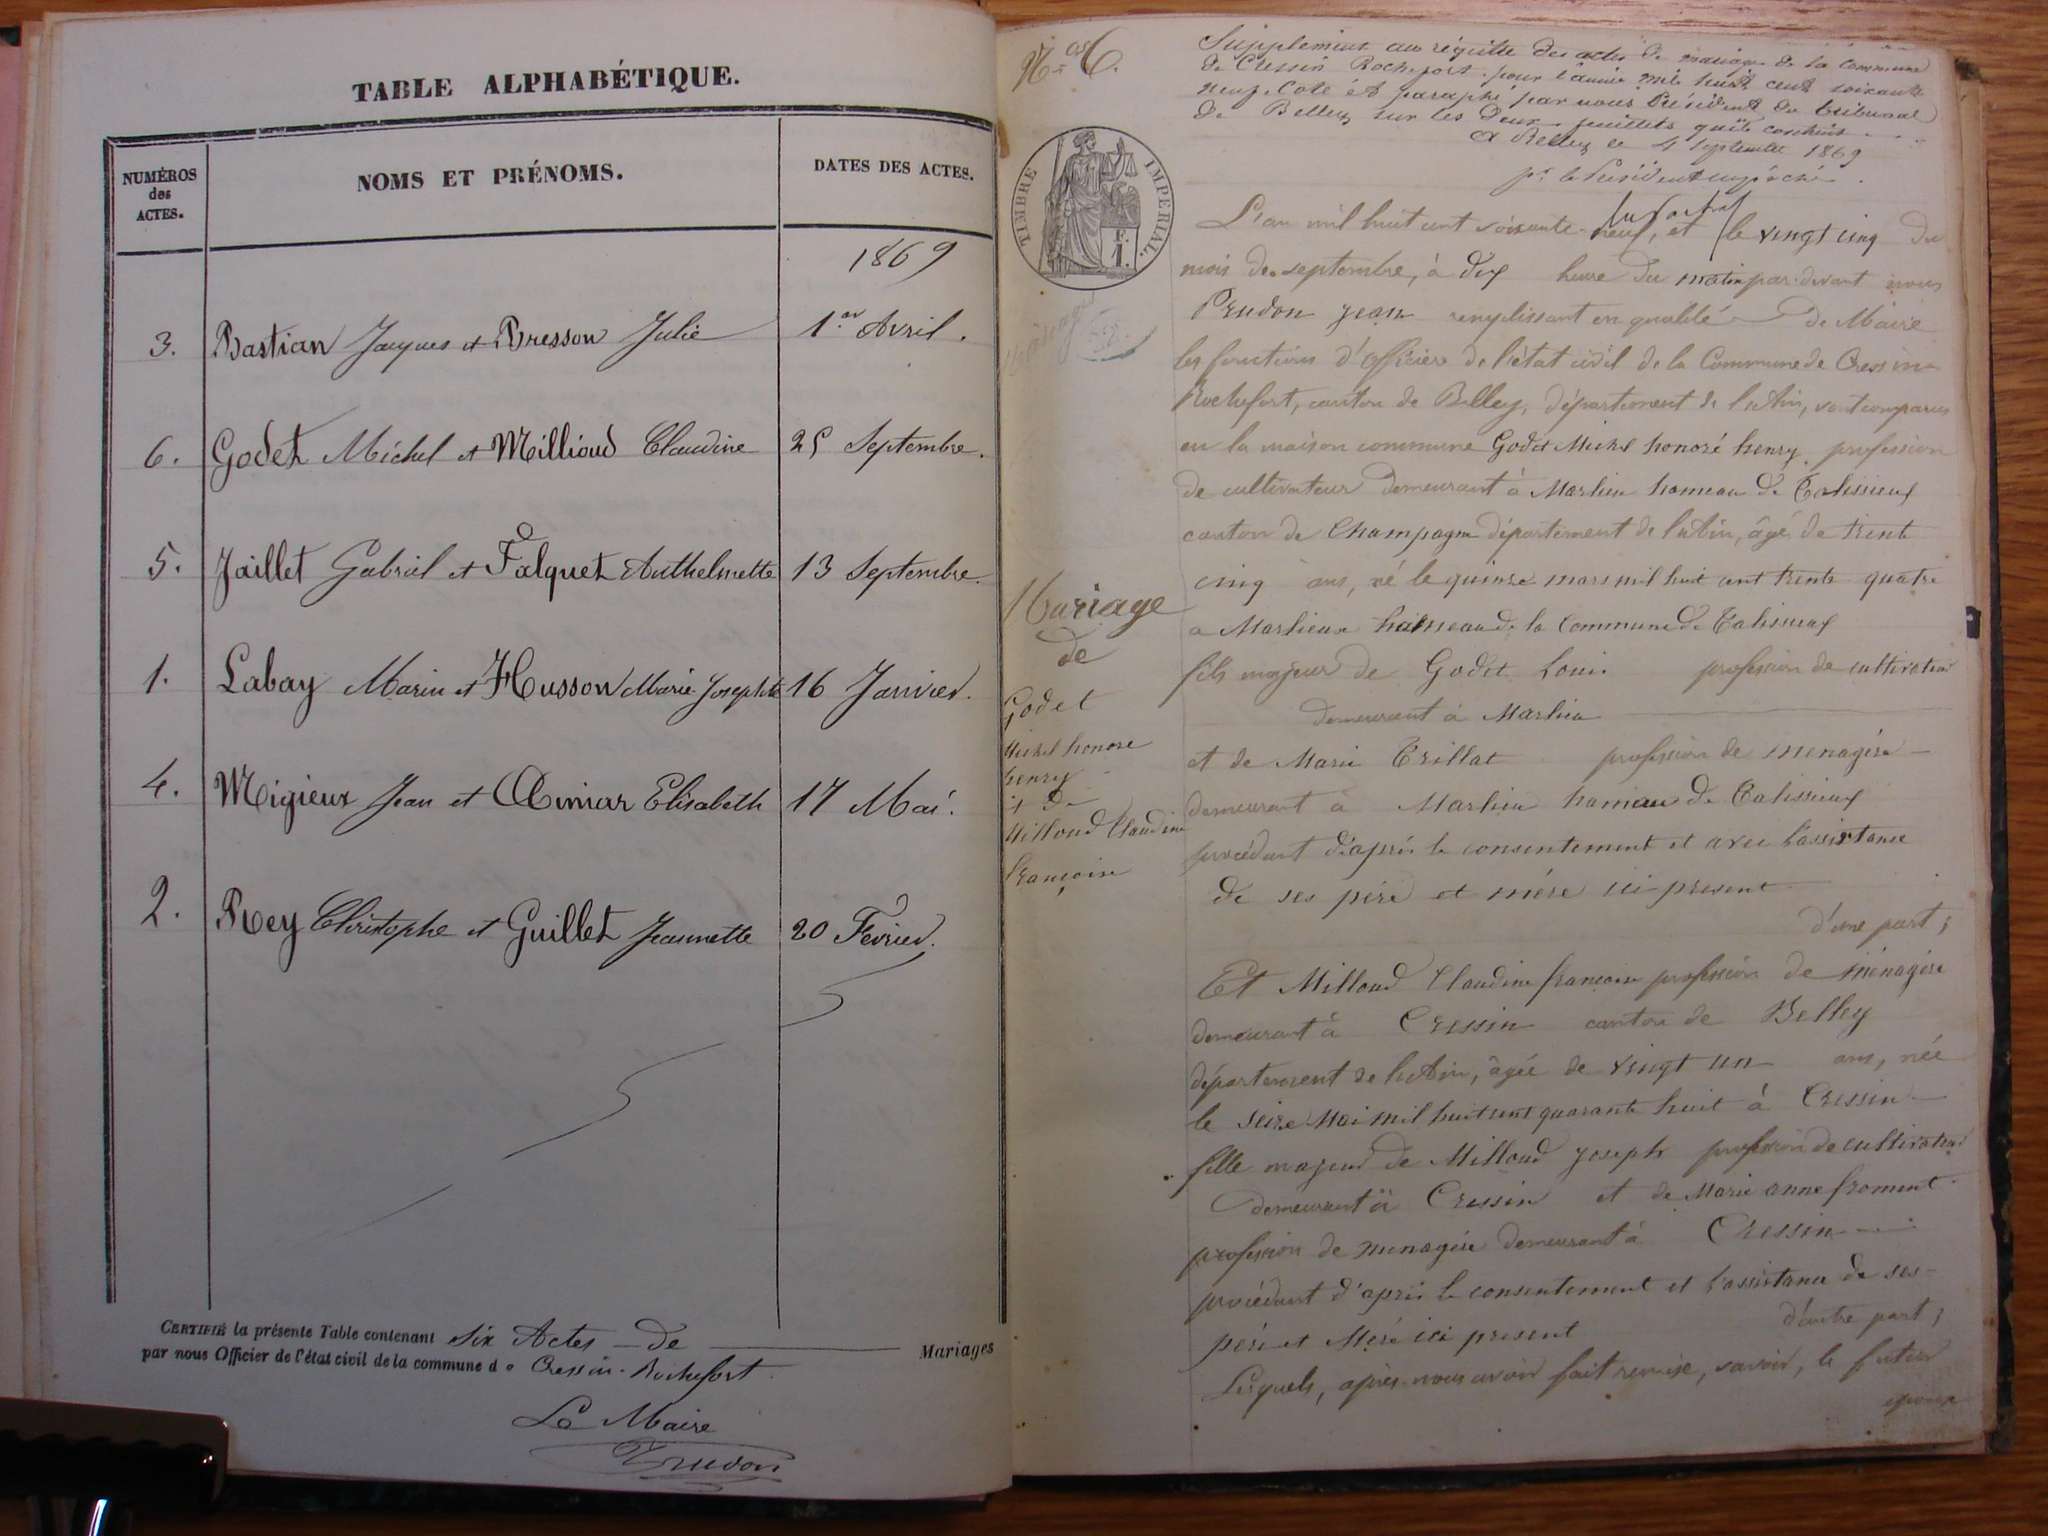 TABLE ALPHABÉTIQUE.
NUMÉROS des ACTES.
NOMS ET PRÉNOMS.
DATES DES ACTES.
1869
3. Bastian Jacques et Bresson Julie 1er Avril.
6. Godet Michel et Millioud Claudine 25 Septembre.
5. Jaillet Gabriel et Falquet Anthelmette 13 Septembre.
1. Labay Marin et Husson Marie Josephte 16 Janvier.
4. Migieux Jean et Aimar Elisabeth 17 Mai.
2. Rey Christophe et Guillet Jeannette 20 Fevrier.
CERTIFIÉ la présente Table contenant six Actes de Mariages
par nous Officier de l'état civil de la commune de Cressin-Rochefort.
Le Maire
Prudon
6.
Supplément au régistre des actes de mariage de la commune
de Cressin Rochefort pour l'année mil huit cent soixante
neuf. Coté et paraphé par nous Président du tribunal
de Belley sur les deux feuillets qu'il contient
A Belley le 4 septembre 1869
pr. le Président empêché
TIMBRE IMPERIAL.
F. 1.
L'an mil huit cent soixante-neuf, et le vingt cinq du
mois de septembre, à dix heure du matin par-devant nous
Prudon jean remplissant en qualité de Maire
les fonctions d'officier de l'état civil de la Commune de Cressin
Rochefort, canton de Belley, département de l'Ain, sont comparus
en la maison commune Godet Michel honoré henry profession
de cultivateur demeurant à Marlieu hameau de Talissieux
canton de Champagne département de l'Ain, âgé de trente
cinq ans, né le quinze mars mil huit cent trente quatre
a Marlieux hameau de la Commune de Talissieux
fils majeur de Godet Louis profession de cultivateur
demeurant à Marlieu
et de Marie Trillat profession de menagère
demeurant à Marlieu hameau de Talissieux
procédant d'après le consentement et avec l'assistance
de ses père et mère ici present
d'une part;
Mariage
de
Godet
Michel honore
henry
et de
Milloud Claudine
françoise
Et Milloud Claudine françoise profession de ménagère
demeurant à Cressin canton de Belley
département de l'Ain, âgée de vingt un ans, née
le seize Mai mil huit cent quarante huit à Cressin
fille majeur de Milloud joseph profession de cultivateur
demeurant à Cressin et de Marie anne froment
profession de menagère demeurant à Cressin
procédant d'après le consentement et l'assistance de ses
père et Mère ici present d'autre part;
Lesquels, après nous avoir fait remise, savoir, le futur
époux